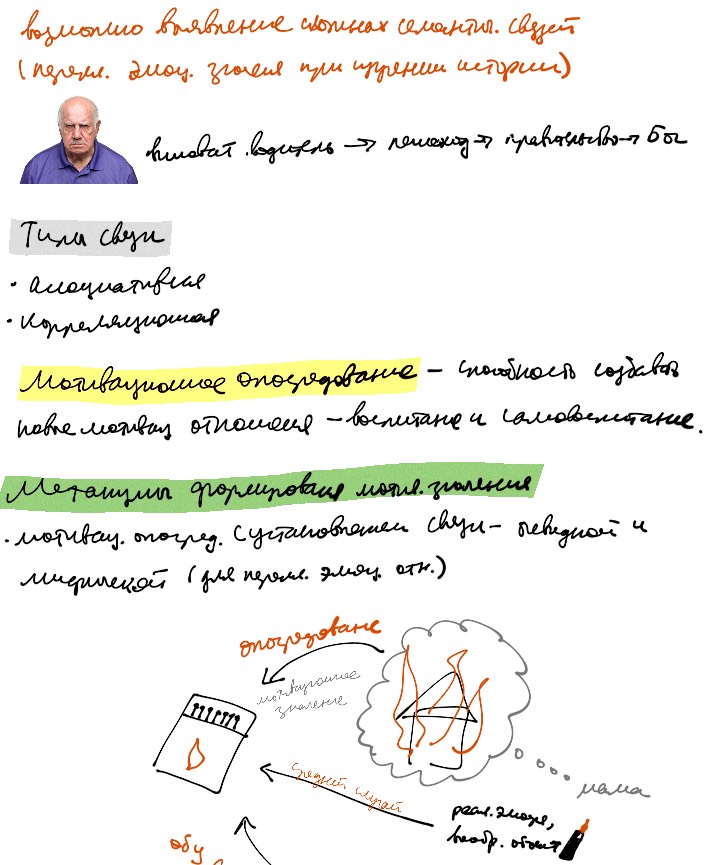 возможно выявление сложных семантич. связей
(перекл. эмоц. значения при изучении истории)
виноват водитель → пешеход → правительство → Бог
Типы связи
• Ассоциативная
• Корреляционная
Мотивационное опосредование – способность создавать
новые мотивац отношения – воспитание и самовоспитание.
Механизмы формирования мотив. значения
• мотивац. опосред. с установлением связи – очевидной и
мифической (для перекл. эмоц. отн.)
опосредование
мотивационное
значение
средний случай
мама
реал. эмоция,
вообр. объект
обу